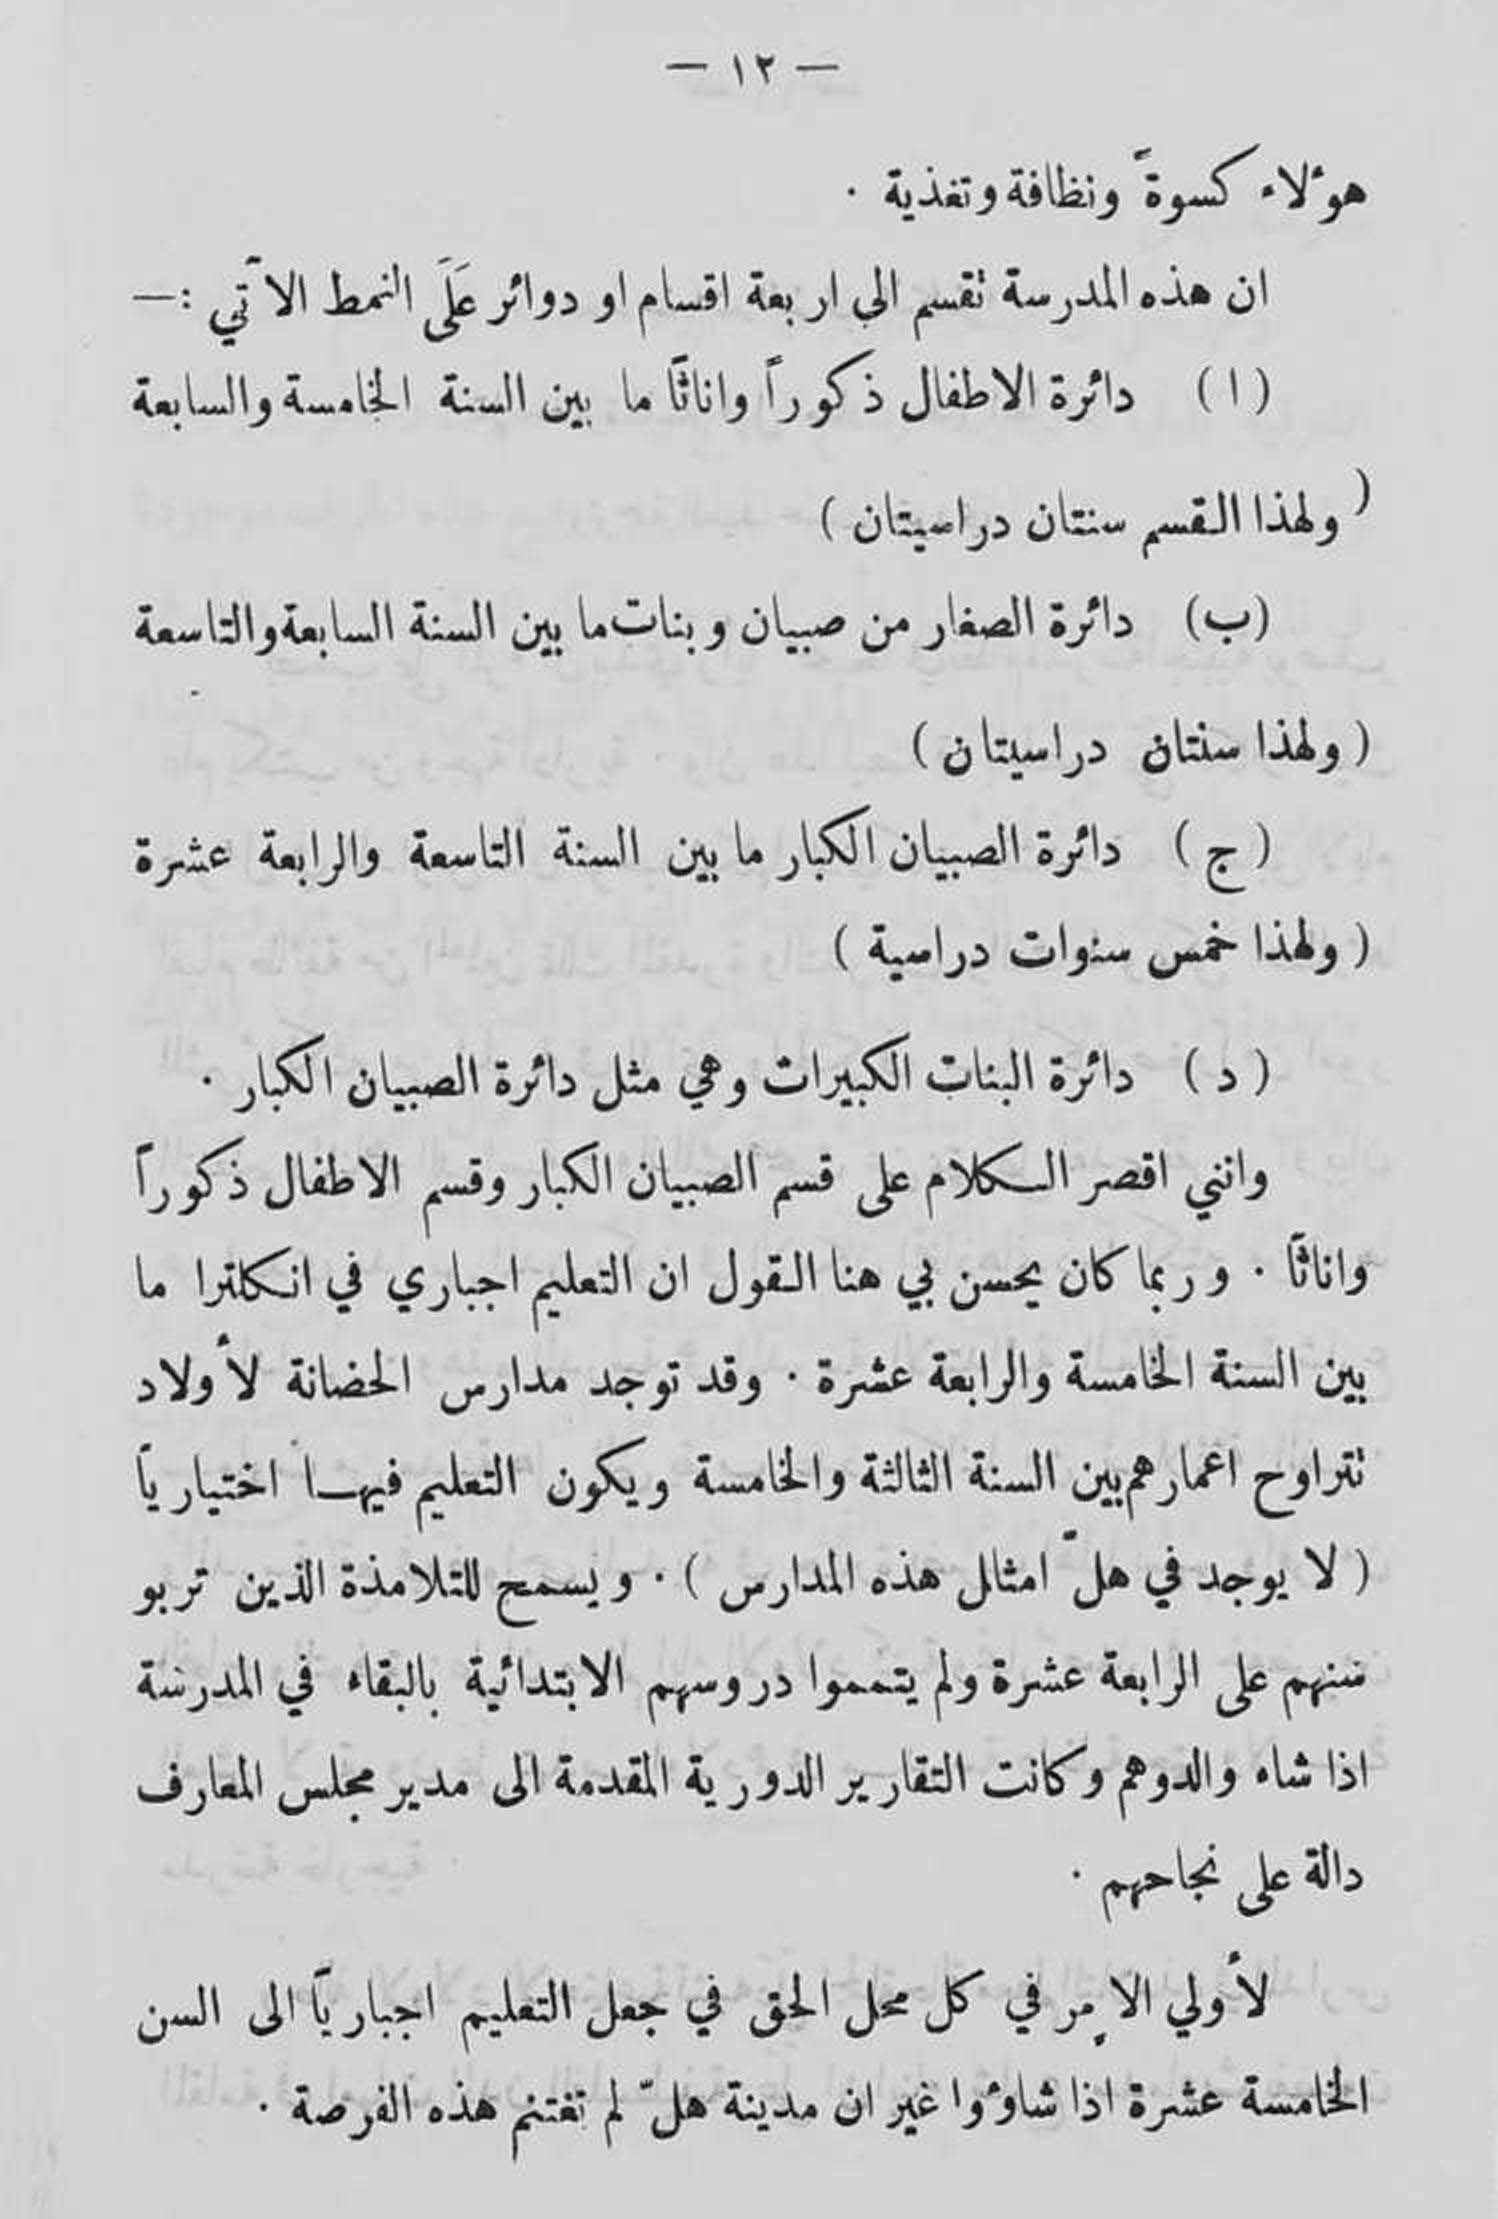 — ١٢ —
هؤلاء كسوةً ونظافة وتغذية .
ان هذه المدرسة تقسم الى اربعة اقسام او دوائر عَلَى النمط الآتي :—
( ا ) دائرة الاطفال ذكوراً واناثاً ما بين السنة الخامسة والسابعة
( ولهذا القسم سنتان دراسيتان )
(ب) دائرة الصغار من صبيان وبنات ما بين السنة السابعة والتاسعة
( ولهذا سنتان دراسيتان )
( ج ) دائرة الصبيان الكبار ما بين السنة التاسعة والرابعة عشرة
( ولهذا خمس سنوات دراسية )
( د ) دائرة البنات الكبيرات وهي مثل دائرة الصبيان الكبار .
وانني اقصر الكلام على قسم الصبيان الكبار وقسم الاطفال ذكوراً
واناثاً . وربما كان يحسن بي هنا القول ان التعليم اجباري في انكلترا ما
بين السنة الخامسة والرابعة عشرة . وقد توجد مدارس الحضانة لأولاد
تتراوح اعمارهم بين السنة الثالثة والخامسة ويكون التعليم فيها اختيارياً
( لا يوجد في هلّ امثال هذه المدارس ) . ويسمح للتلامذة الذين تربو
سنهم على الرابعة عشرة ولم يتمموا دروسهم الابتدائية بالبقاء في المدرسة
اذا شاء والدوهم وكانت التقارير الدورية المقدمة الى مدير مجلس المعارف
دالة على نجاحهم .
لأولي الامر في كل محل الحق في جعل التعليم اجبارياً الى السن
الخامسة عشرة اذا شاؤوا غير ان مدينة هلّ لم تغتنم هذه الفرصة .